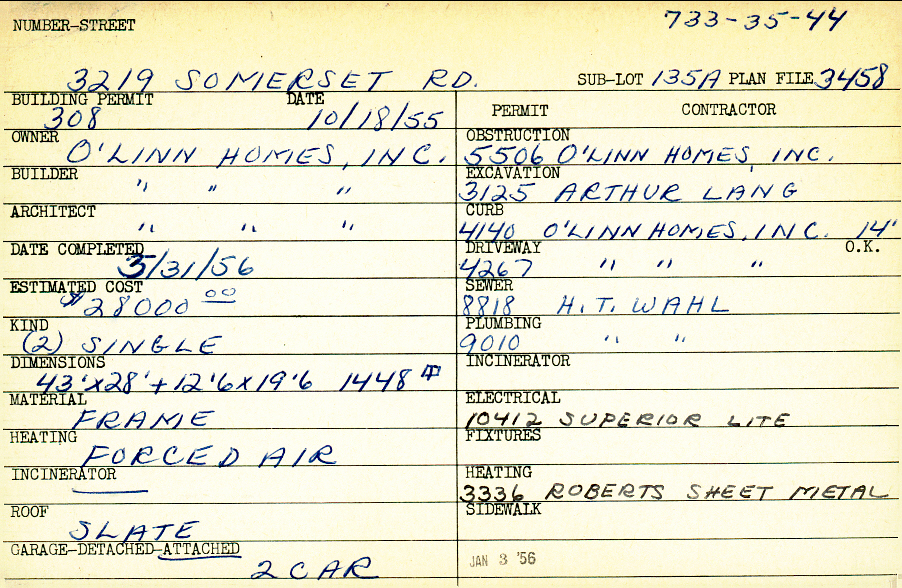 733-35-44
NUMBER-STREET
3219 SOMERSET RD. SUB-LOT 135A PLAN FILE 3458
BUILDING PERMIT DATE
308 10/18/55
OWNER
O'LINN HOMES, INC.
BUILDER
" " "
ARCHITECT
" " "
DATE COMPLETED
5/31/56
ESTIMATED COST
$28000 00
KIND
(2) SINGLE
DIMENSIONS
43'x28'+12'6x19'6 1448
MATERIAL
FRAME
HEATING
FORCED AIR
INCINERATOR
ROOF
SLATE
GARAGE-DETACHED-ATTACHED
2 CAR
PERMIT CONTRACTOR
OBSTRUCTION
5506 O'LINN HOMES, INC.
EXCAVATION
3125 ARTHUR LANG
CURB
4140 O'LINN HOMES, INC. 14'
DRIVEWAY O.K.
4267 " " "
SEWER
8818 H.T. WAHL
PLUMBING
9010 " "
INCINERATOR
ELECTRICAL
10412 SUPERIOR LITE
FIXTURES
HEATING
3336 ROBERTS SHEET METAL
SIDEWALK
JAN 3 '56